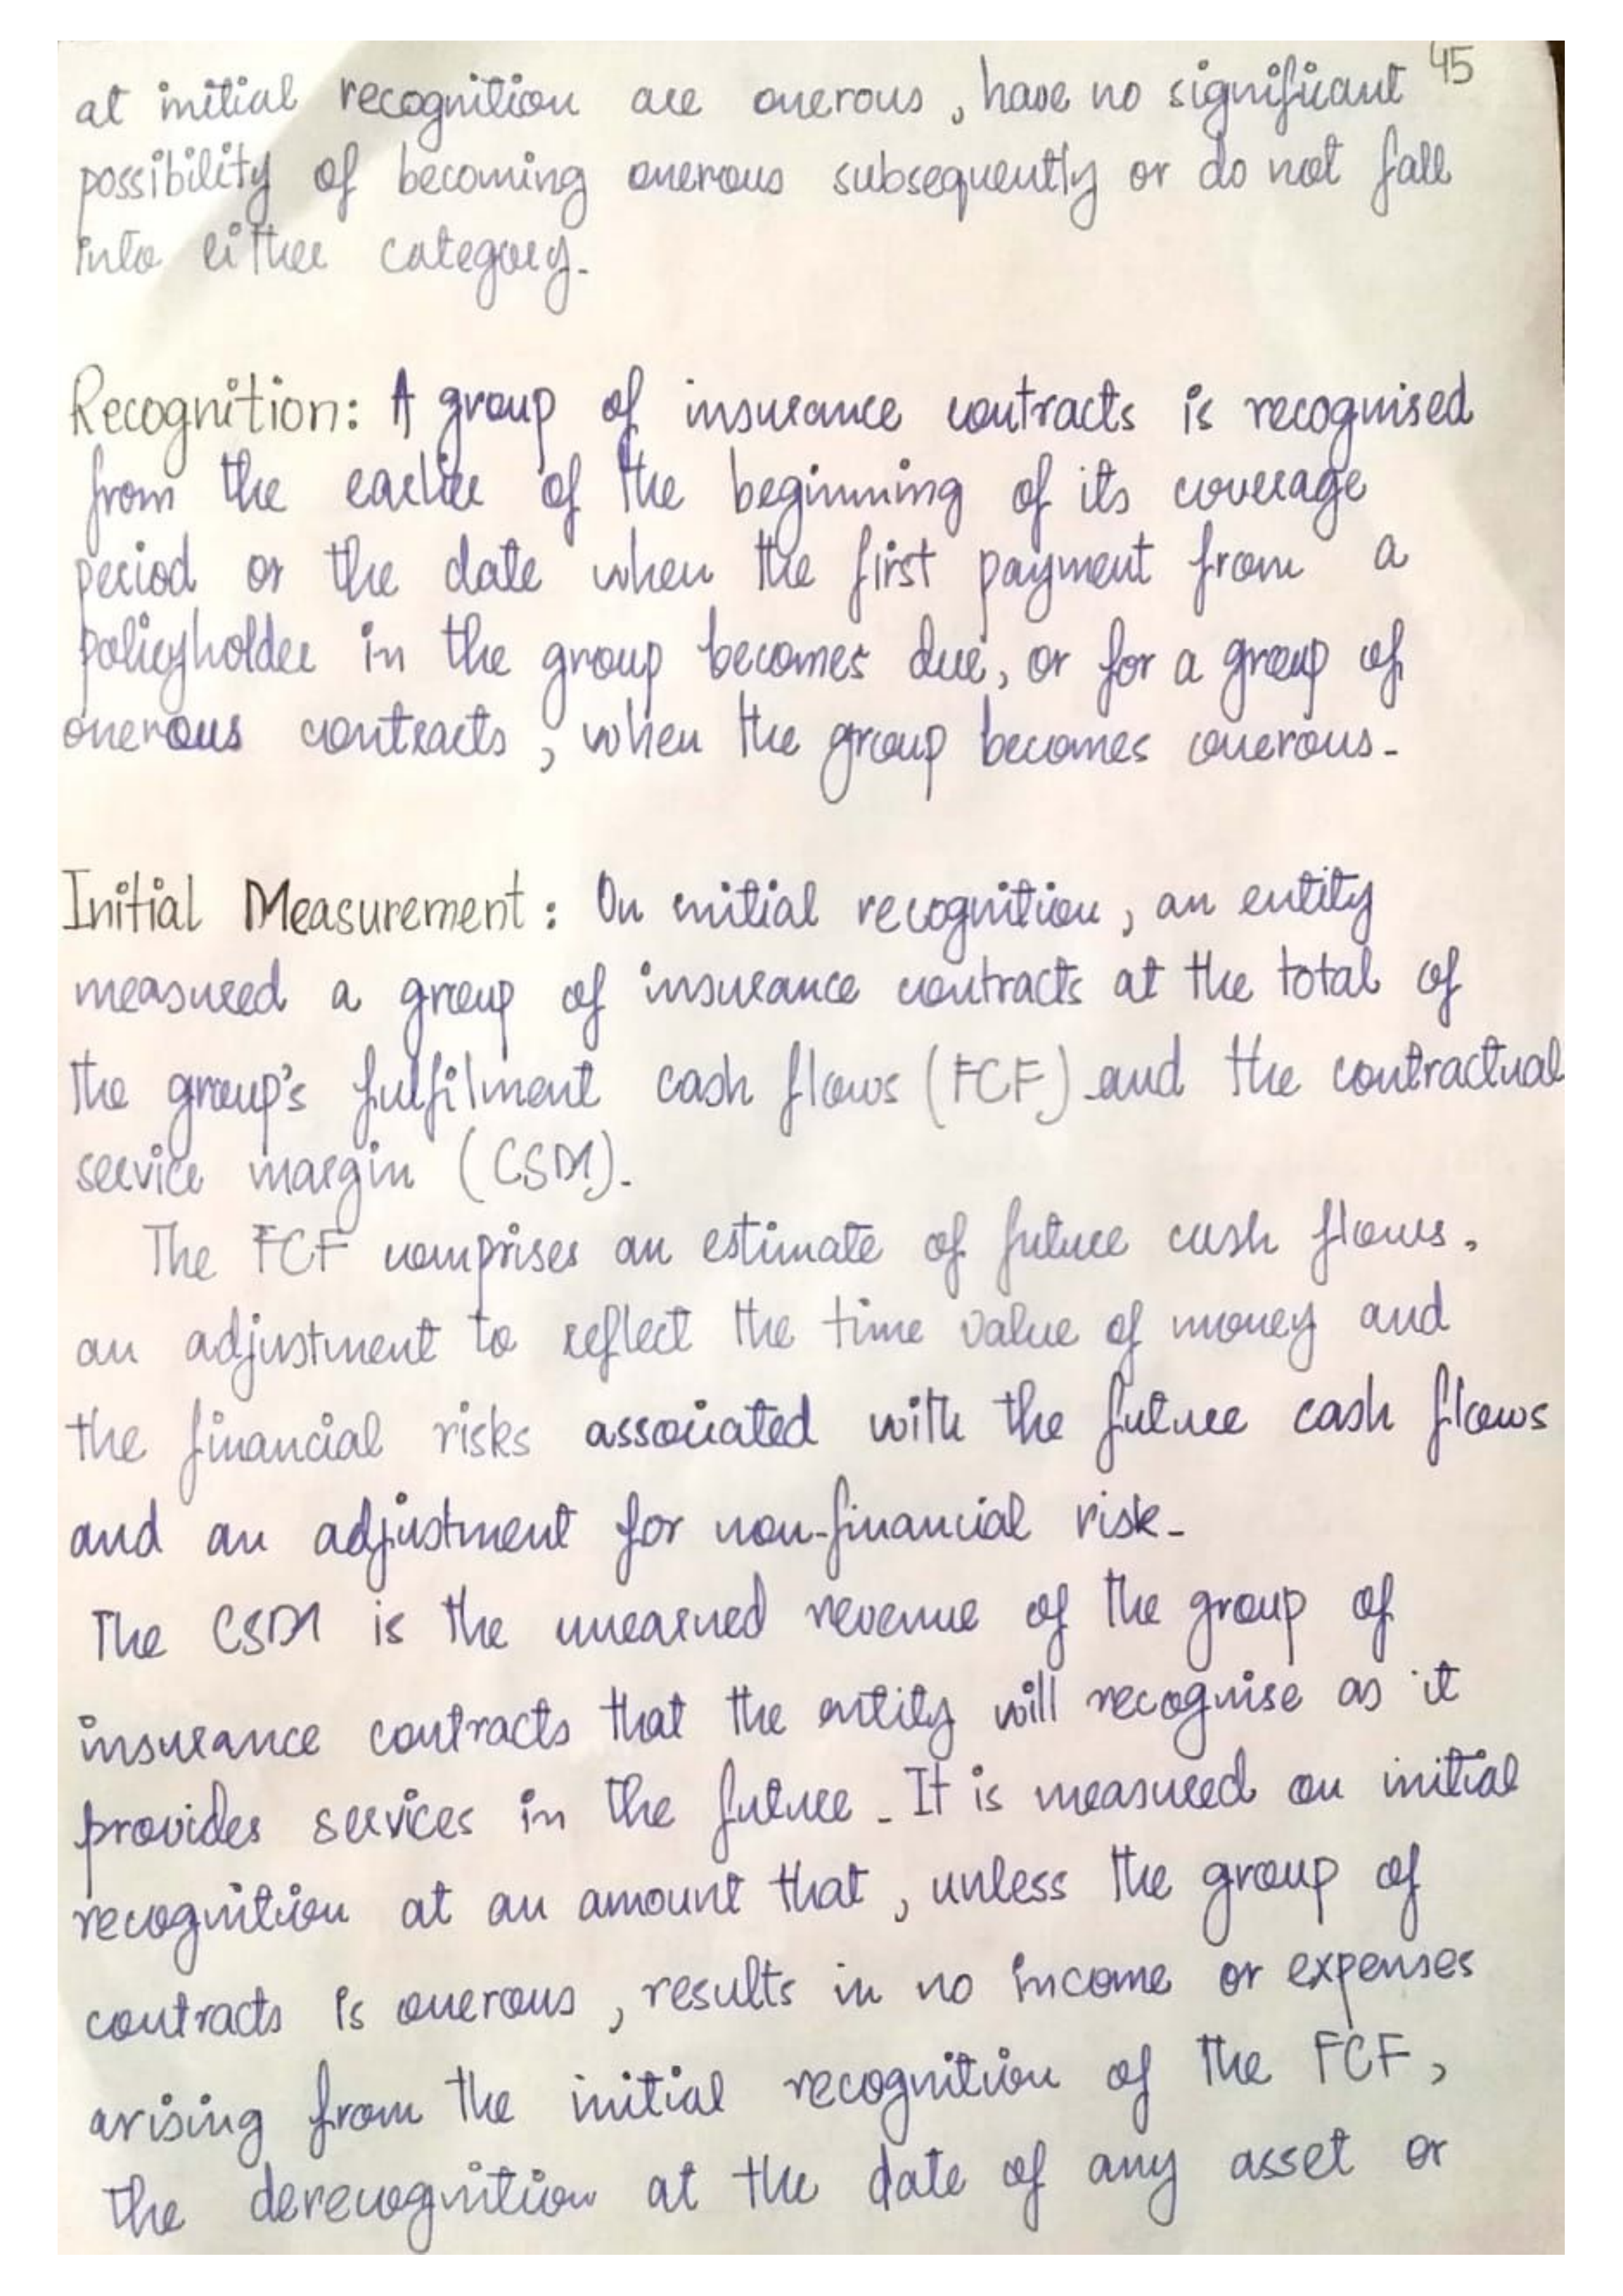 45
at initial recognition are onerous, have no significant
possibility of becoming onerous subsequently or do not fall
into either category.
Recognition: A group of insurance contracts is recognised
from the earlier of the beginning of its coverage
period or the date when the first payment from a
policyholder in the group becomes due, or for a group of
onerous contracts, when the group becomes onerous.
Initial Measurement: On initial recognition, an entity
measured a group of insurance contracts at the total of
the group's fulfilment cash flows (FCF) and the contractual
service margin (CSM).
The FCF comprises an estimate of future cash flows,
an adjustment to reflect the time value of money and
the financial risks associated with the future cash flows
and an adjustment for non-financial risk.
The CSM is the unearned revenue of the group of
insurance contracts that the entity will recognise as it
provides services in the future. It is measured on initial
recognition at an amount that, unless the group of
contracts is onerous, results in no income or expenses
arising from the initial recognition of the FCF,
the derecognition at the date of any asset or